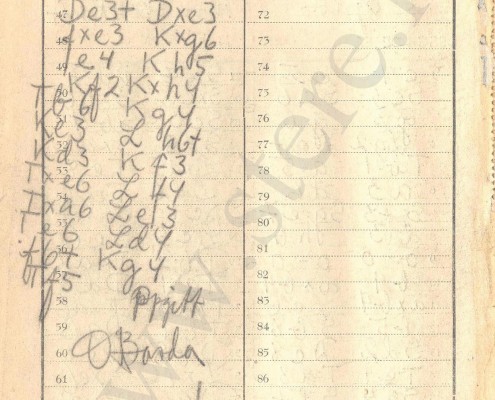 47 De3+ Dxe3 72
48 fxe3 Kxg6 73
49 e4 Kh5 74
50 Kf2 Kxh4 75
51 Tb6 Kg4 76
52 Ke3 Lh6+ 77
53 Kd3 Kf3 78
54 Txe6 Lf4 79
55 Txa6 Le3 80
56 e6 Ld4 81
57 Kg4 82
58 f5 83
59 84
60 O Barda 85
61 86
www.stere